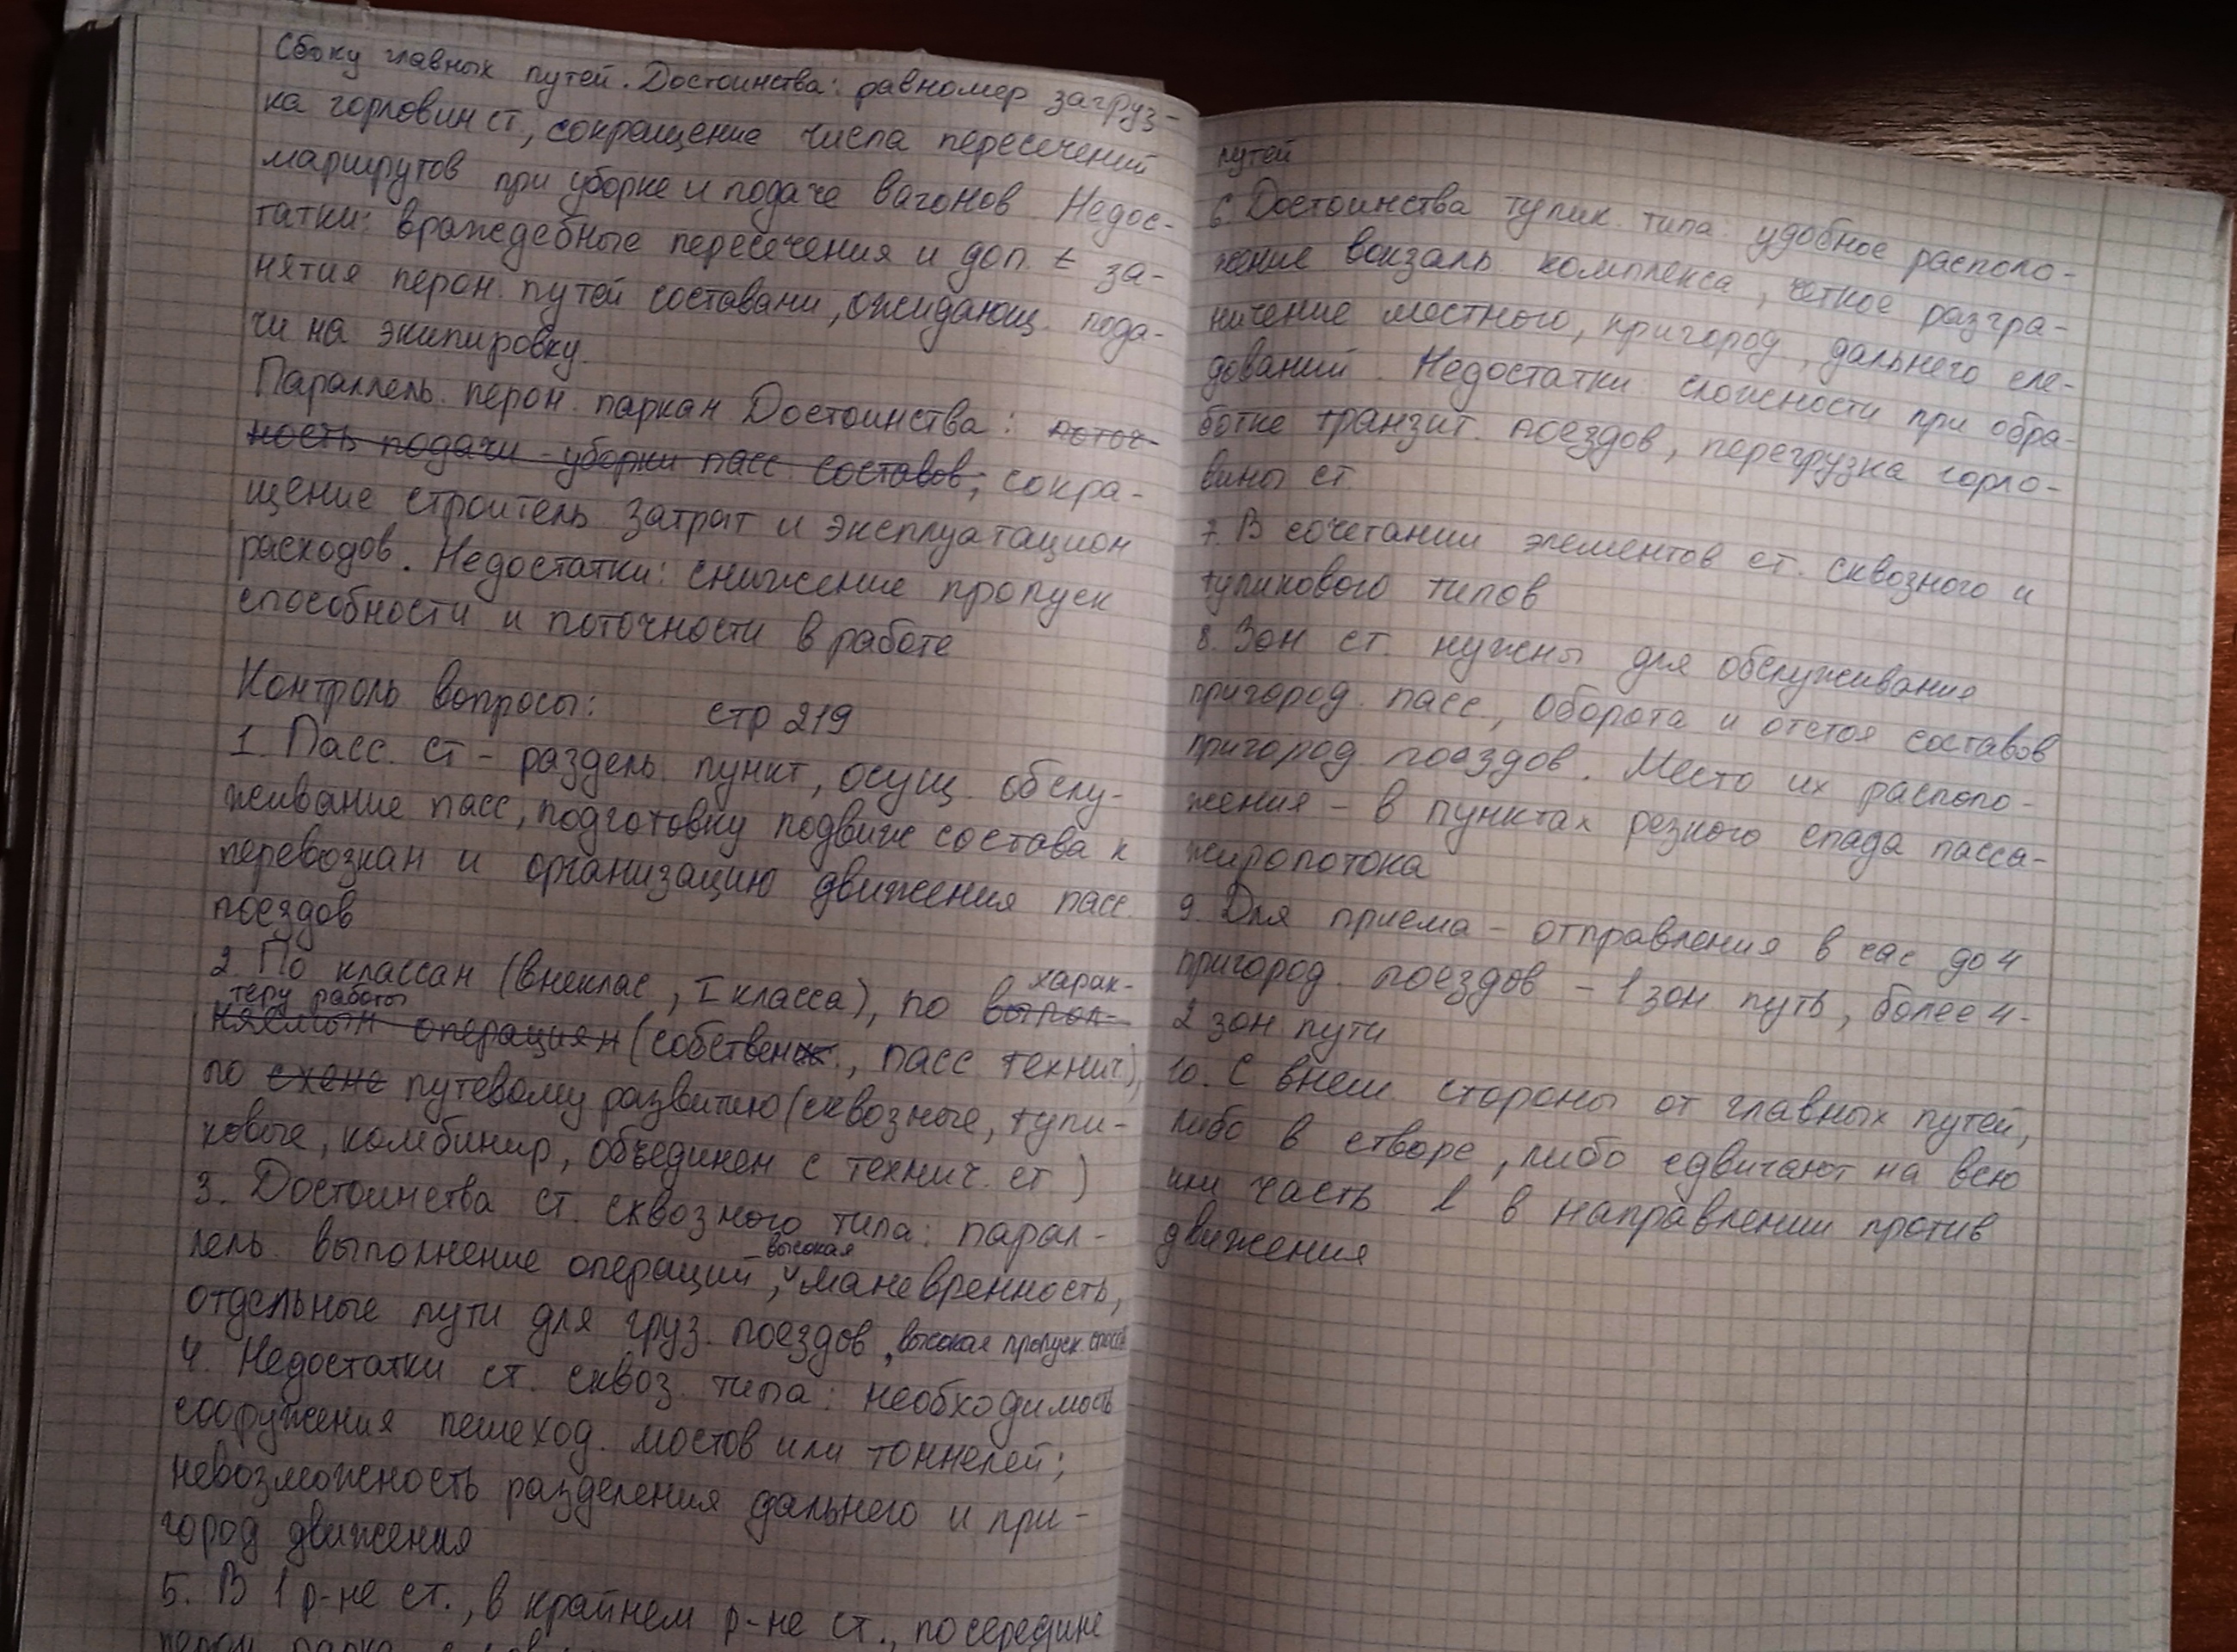 Сбоку главных путей. Достоинства: равномер загруз-
ка горловин ст, сокращение числа пересечений
маршрутов при уборке и подаче вагонов Недос-
татки: враждебные пересечения и доп. t за-
нятия перон. путей составами, ожидающ. пода-
чи на экипировку.
Параллель. перон. паркам Достоинства: поточ-
ность подачи - уборки пасс составов, сокра-
щение строитель затрат и эксплуатацион
расходов. Недостатки: снижение пропуск
способности и поточности в работе
Контроль вопросы: стр 219
1. Пасс. ст - раздель. пункт, осущ. обслу-
живание пасс, подготовку подвиж состава к
перевозкам и организацию движения пасс.
поездов
2. По классам (внеклас, I класса), по выпол- харак-
теру работы
няемым операциям (собствен., пасс технич),
по схеме путевому развитию (сквозные, тупи-
ковые, комбинир, объединен с технич. ст)
3. Достоинства ст. сквозного типа: парал-
лель. выполнение операций, высокая маневренность,
отдельные пути для груз. поездов, высокая пропуск. способ
4. Недостатки ст. сквоз. типа: необходимость
сооружения пешеход. мостов или тоннелей;
невозможность разделения дальнего и при-
город движения
5. В 1 р-не ст., в крайнем р-не ст., посередине
перон парка
путей
6. Достоинства тупик. типа: удобное располо-
жение вокзаль. комплекса, четкое разгра-
ничение местного, пригород, дальнего сле-
дований. Недостатки: сложности при обра-
ботке транзит. поездов, перегрузка горло-
вины ст.
7. В сочетании элементов ст. сквозного и
тупикового типов
8. Зон ст. нужны для обслуживание
пригород. пасс., оборота и отстоя составов
пригород поездов. Место их располо-
жения - в пунктах резкого спада пасса-
жиропотока
9. Для приема - отправления в час до 4
пригород. поездов - 1 зон путь, более 4 -
2 зон пути
10. С внеш. стороны от главных путей,
либо в створе, либо сдвигают на всю
или часть l в направлении против
движения